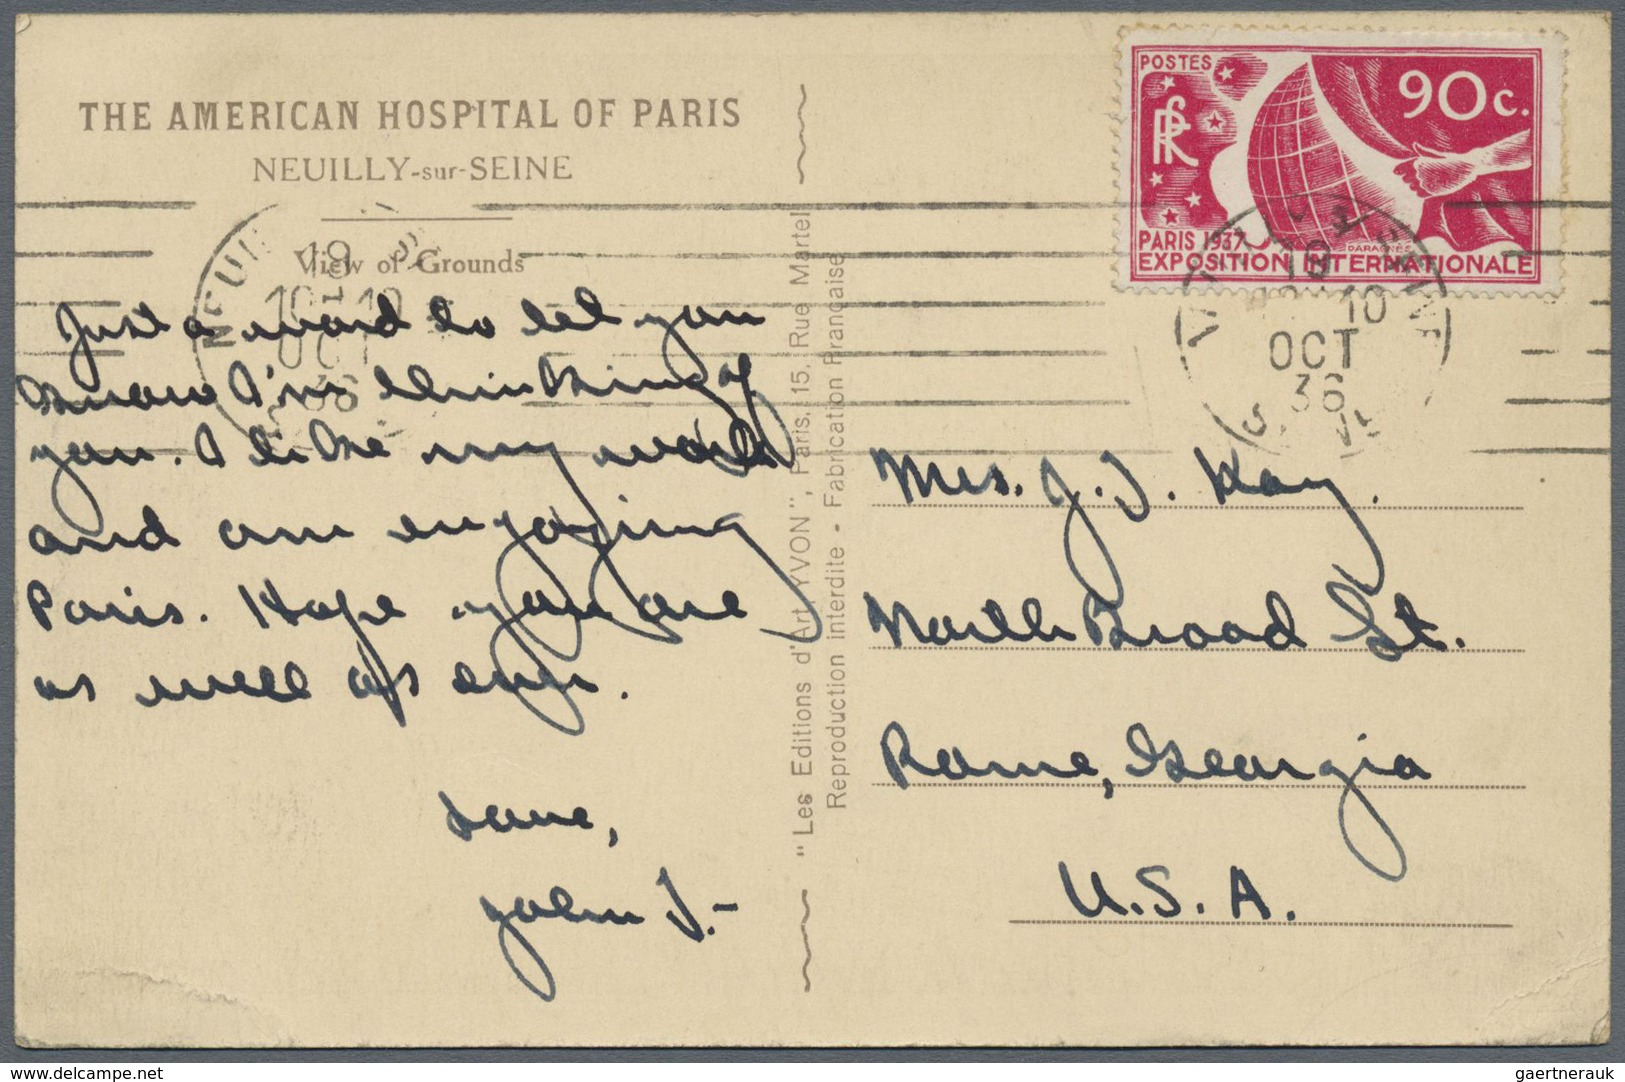 THE AMERICAN HOSPITAL OF PARIS
NEUILLY-sur-SEINE
View of Grounds
Just a word to let you
know I'm thinking of
you. I like my work
and am enjoying
Paris. Hope you are
as well as ever.
Love,
John J.-
"Les Editions d'Art YVON", Paris, 15, Rue Martel
Reproduction interdite - Fabrication Française
POSTES
RF
90c.
PARIS 1937
DARAGNÈS
EXPOSITION INTERNATIONALE
19
10
OCT
36
19
10
OCT
36
Mrs. J. J. Kay.
North Broad St.
Rome, Georgia
U.S.A.
www.delcampe.net
gaertnerauk